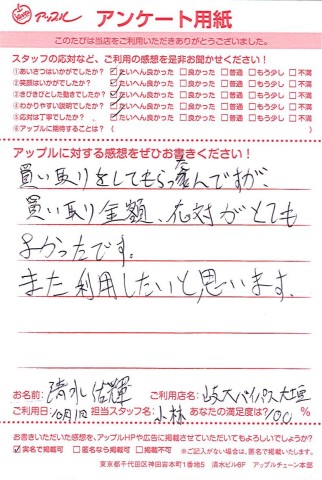 アップル アンケート用紙
このたびは当店をご利用いただきありがとうございました。
スタッフの応対など、ご利用の感想を是非お聞かせください!
①あいさつはいかがでしたか? ☑たいへん良かった □良かった □普通 □もう少し □不満
②笑顔はいかがでしたか? ☑たいへん良かった □良かった □普通 □もう少し □不満
③きびきびとした動きでしたか? ☑たいへん良かった □良かった □普通 □もう少し □不満
④わかりやすい説明でしたか? ☑たいへん良かった □良かった □普通 □もう少し □不満
⑤応対は丁寧でしたか? ☑たいへん良かった □良かった □普通 □もう少し □不満
⑥アップルに期待することは? ( )
アップルに対する感想をぜひお書きください!
買い取りをしてもらったんですが、
買い取り金額、応対がとても
よかったです。
また利用したいと思います。
お名前: 清水 佑輝 ご利用店名: 岐大バイパス大垣
ご利用日: 10月1日 担当スタッフ名: 小林 あなたの満足度は? 100 %
お書きいただいた感想を、アップルHPや広告に掲載させていただいてもよろしいでしょうか?
☑実名で掲載可 □匿名なら掲載可 □掲載不可 ※ご記入がない場合は、匿名で掲載いたします。
東京都千代田区神田岩本町1番地5 清水ビル6F アップルチェーン本部